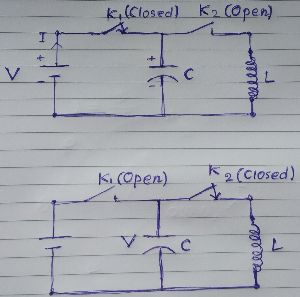 K₁(Closed) K₂(Open)
I
+ +
V C L
- -
K₁(Open) K₂(Closed)
V C L